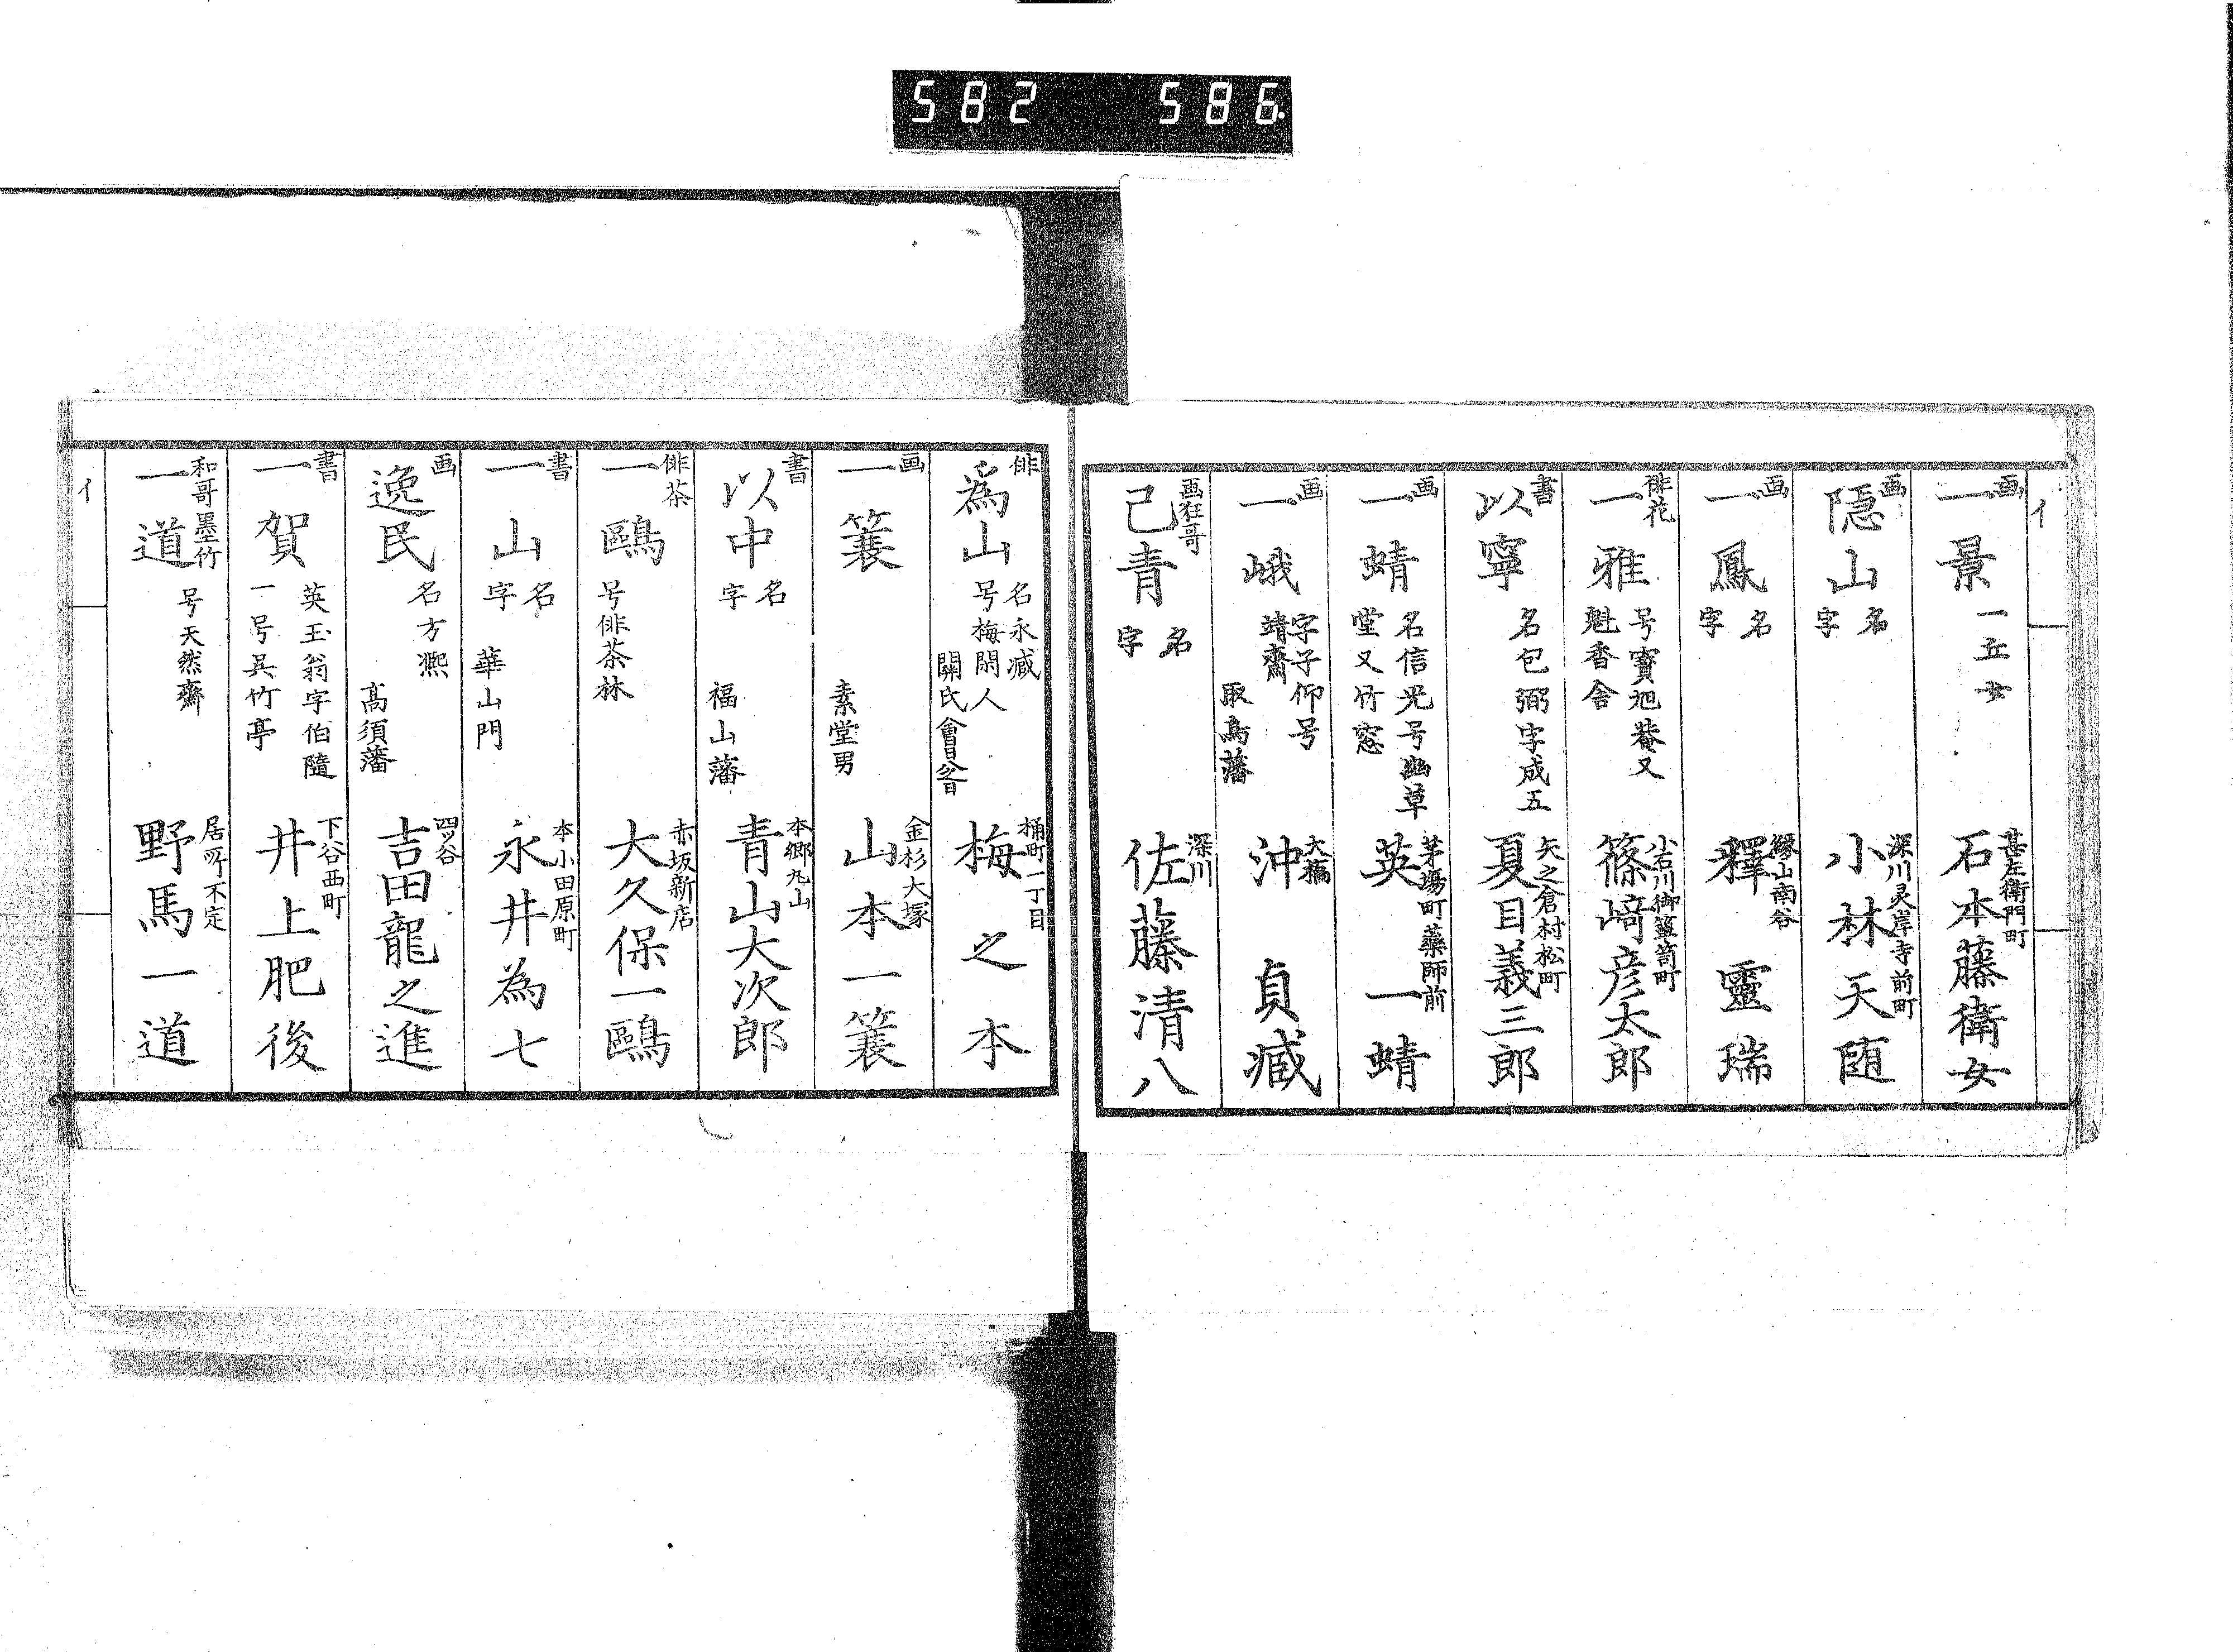 582 586
イ
画
一景
一五女
甚左衛門町
石本藤衛女
画
隠山
名
字
深川灵岸寺前町
小林天随
画
一鳳
名
字
縁山南谷
釋 靈瑞
俳花
一雅
号寶旭菴又
魁香舎
小石川御簞笥町
篠﨑彦太郎
書
以寧
名包弼字成五
矢之倉村松町
夏目義三郎
画
一蜻
名信光号幽草
堂又竹窓
茅場町藥師前
英 一蜻
画
一峨
字子仰号
靖齋
取鳥藩
大橋
沖 貞臧
画狂哥
己青
名
字
深川
佐藤清八
俳
爲山
名永減
号梅閑人
關氏會日
桶町一丁目
梅之本
画
一簑
素堂男
金杉大塚
山本一簑
書
以中
名
字
福山藩
本郷丸山
青山大次郎
俳茶
一鷗
号俳茶林
赤坂新店
大久保一鷗
書
一山
名
字
華山門
本小田原町
永井為七
画
逸民
名方凞
髙須藩
四ッ谷
吉田龍之進
書
一賀
英玉翁字伯隨
一号呉竹亭
下谷西町
井上肥後
和哥墨竹
一道
号天然齋
居所不定
野馬一道
イ